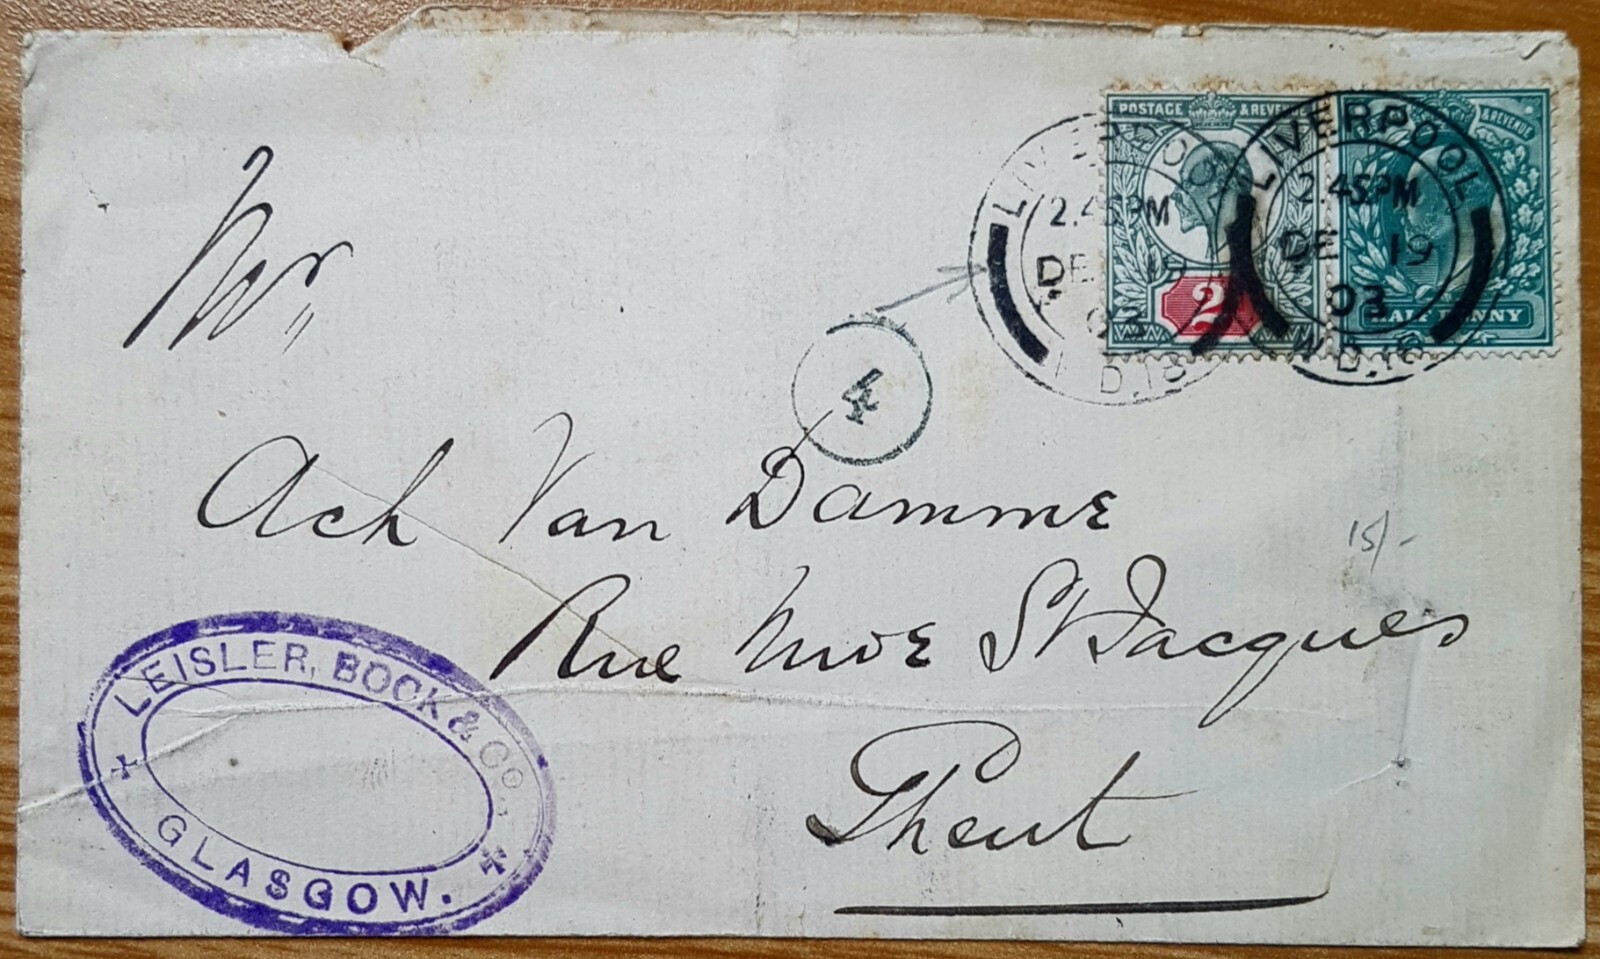 POSTAGE & REVENUE
2
& REVENUE
HALF PENNY
LIVERPOOL
2.45PM
DE 19
03
D.18
LIVERPOOL
2.45PM
DE 19
03
D.18
4
Mr
Ach Van Damme
15/-
Rue St Jacques
Ghent
LEISLER, BOCK & Co.,
GLASGOW.